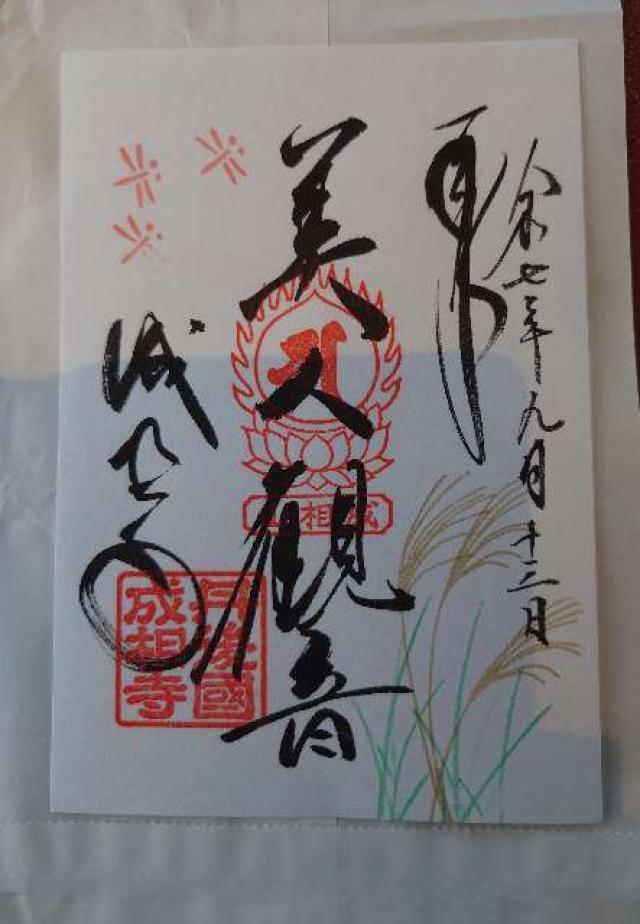 令和七年九月十三日
奉拝
美人観音
成相寺
丹後國
成相寺